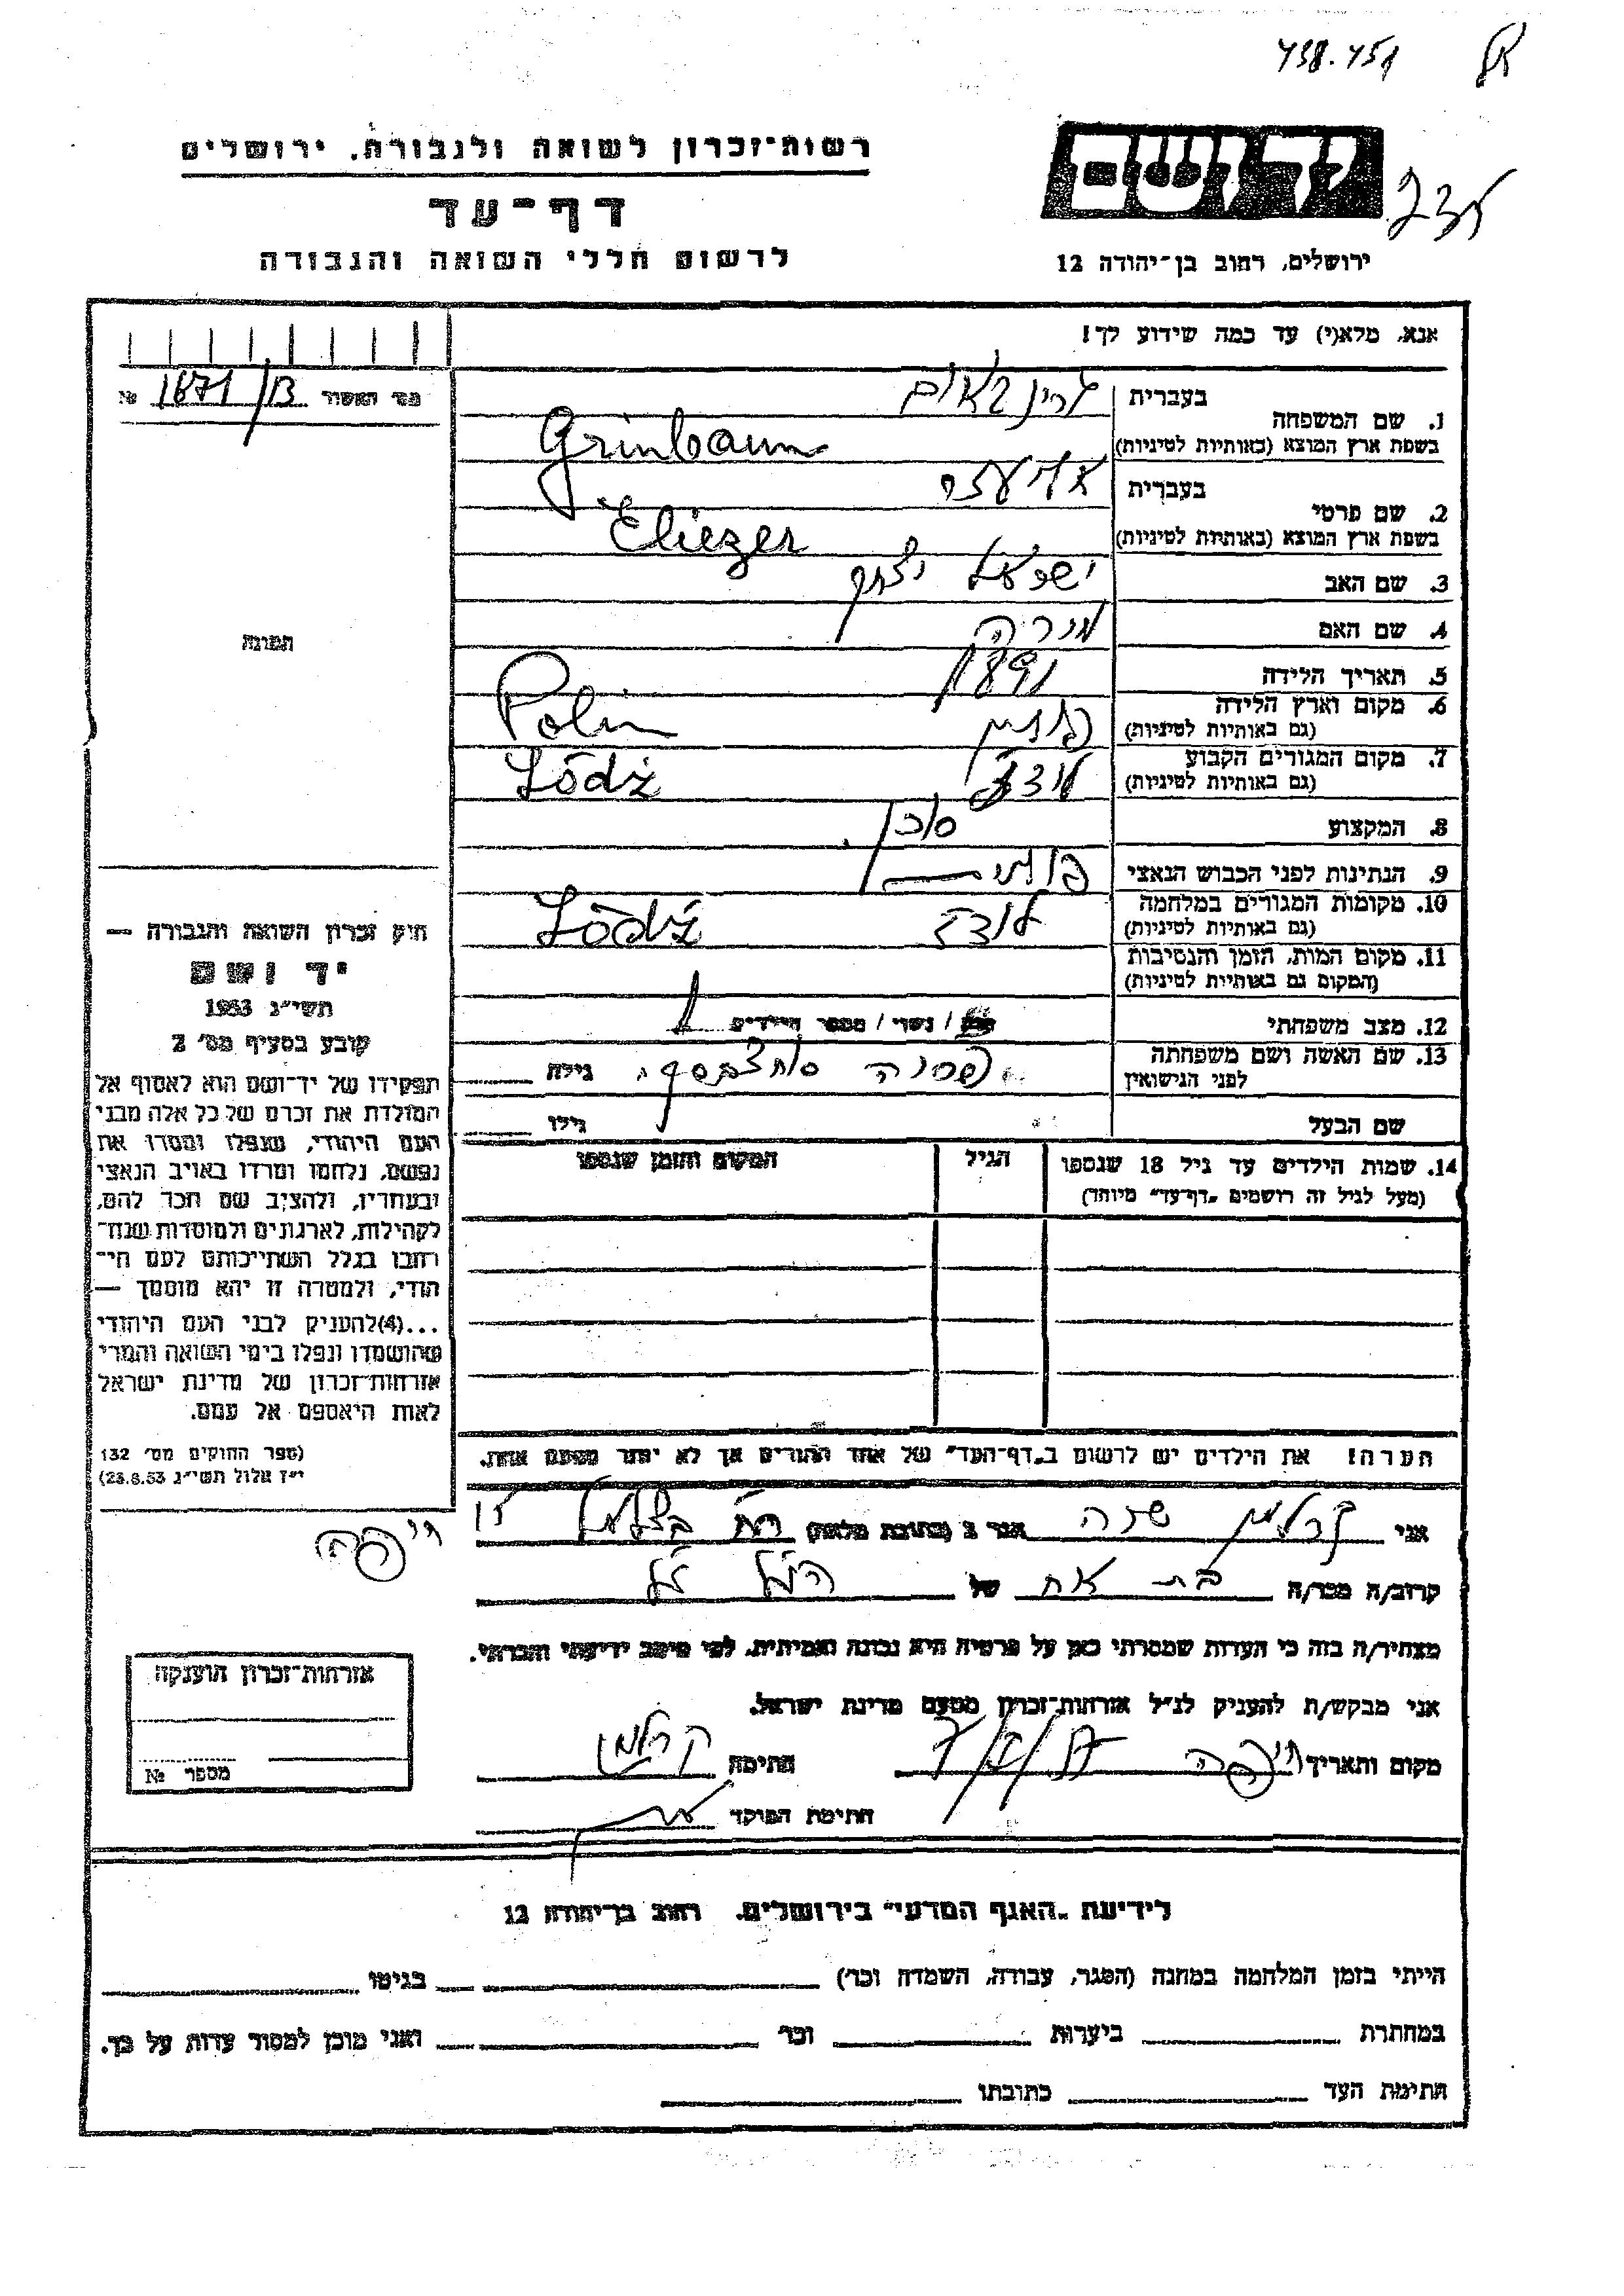 438.451
רשות־זכרון לשואה ולגבורה, ירושלים
דף־עד
לרשום חללי השואה והגבורה
ירושלים, רחוב בן־יהודה 12
אנא, מלא(י) עד כמה שידוע לך!
מס׳ האשור 1871/13 №
1. שם המשפחה
בעברית גרינבאום
בשפת ארץ המוצא (באותיות לטיניות) Grinbaum
2. שם פרטי
בעברית אליעזר
בשפת ארץ המוצא (באותיות לטיניות) Eliezer
3. שם האב ישראל יצחק
4. שם האם
5. תאריך הלידה 1891
6. מקום וארץ הלידה
(גם באותיות לטיניות) פולין Polin
7. מקום המגורים הקבוע
(גם באותיות לטיניות) לודז Łódż
8. המקצוע סוכן
9. הנתינות לפני הכבוש הנאצי
10. מקומות המגורים במלחמה
(גם באותיות לטיניות) לודז Łódż
11. מקום המות, הזמן והנסיבות
(המקום גם באותיות לטיניות)
12. מצב משפחתי / נשוי / מספר הילדים 1
13. שם האשה ושם משפחתה
לפני הנישואין גילה
שם הבעל גילו
14. שמות הילדים עד גיל 18 שנספו
(מעל לגיל זה רושמים „דף־עד" מיוחד)
הגיל
המקום והזמן שנספו
הערה! את הילדים יש לרשום ב„דף־העד" של אחד ההורים אך לא יותר מפעם אחת.
תמונה
חוק זכרון השואה והגבורה —
יד ושם
תשי״ג 1953
קובע בסעיף מס׳ 2
תפקידו של יד־ושם הוא לאסוף אל
המולדת את זכרם של כל אלה מבני
העם היהודי, שנפלו ומסרו את
נפשם, נלחמו ומרדו באויב הנאצי
ובעוזריו, ולהציב שם וזכר להם,
לקהילות, לארגונים ולמוסדות שנח־
רבו בגלל השתייכותם לעם הי־
הודי, ולמטרה זו יהא מוסמך —
...(4)להעניק לבני העם היהודי
שהושמדו ונפלו בימי השואה והמרי
אזרחות־זכרון של מדינת ישראל
לאות היאספם אל עמם.
(ספר החוקים מס׳ 132
י״ז אלול תשי״ג 23.8.53)
אני קרלמן שרה הגר ב (כתובת מלאה) רח׳ בצלאל 17
חיפה
קרוב/ה מכר/ה בת אח של הנ״ל
מצהיר/ה בזה כי העדות שמסרתי כאן על פרטיה היא נכונה ואמיתית, לפי מיטב ידיעתי והכרתי.
אני מבקש/ת להעניק לנ״ל אזרחות־זכרון מטעם מדינת ישראל.
מקום ותאריך חיפה חתימה קרלמן
חתימת הפוקד
אזרחות־זכרון הוענקה
מספר №
לידיעת „האגף המדעי" בירושלים, רחוב בן־יהודה 12
הייתי בזמן המלחמה במחנה (הסגר, עבודה, השמדה וכו׳) בגיטו
במחתרת ביערות וכו׳ ואני מוכן למסור עדות על כך.
חתימת העד כתובתו